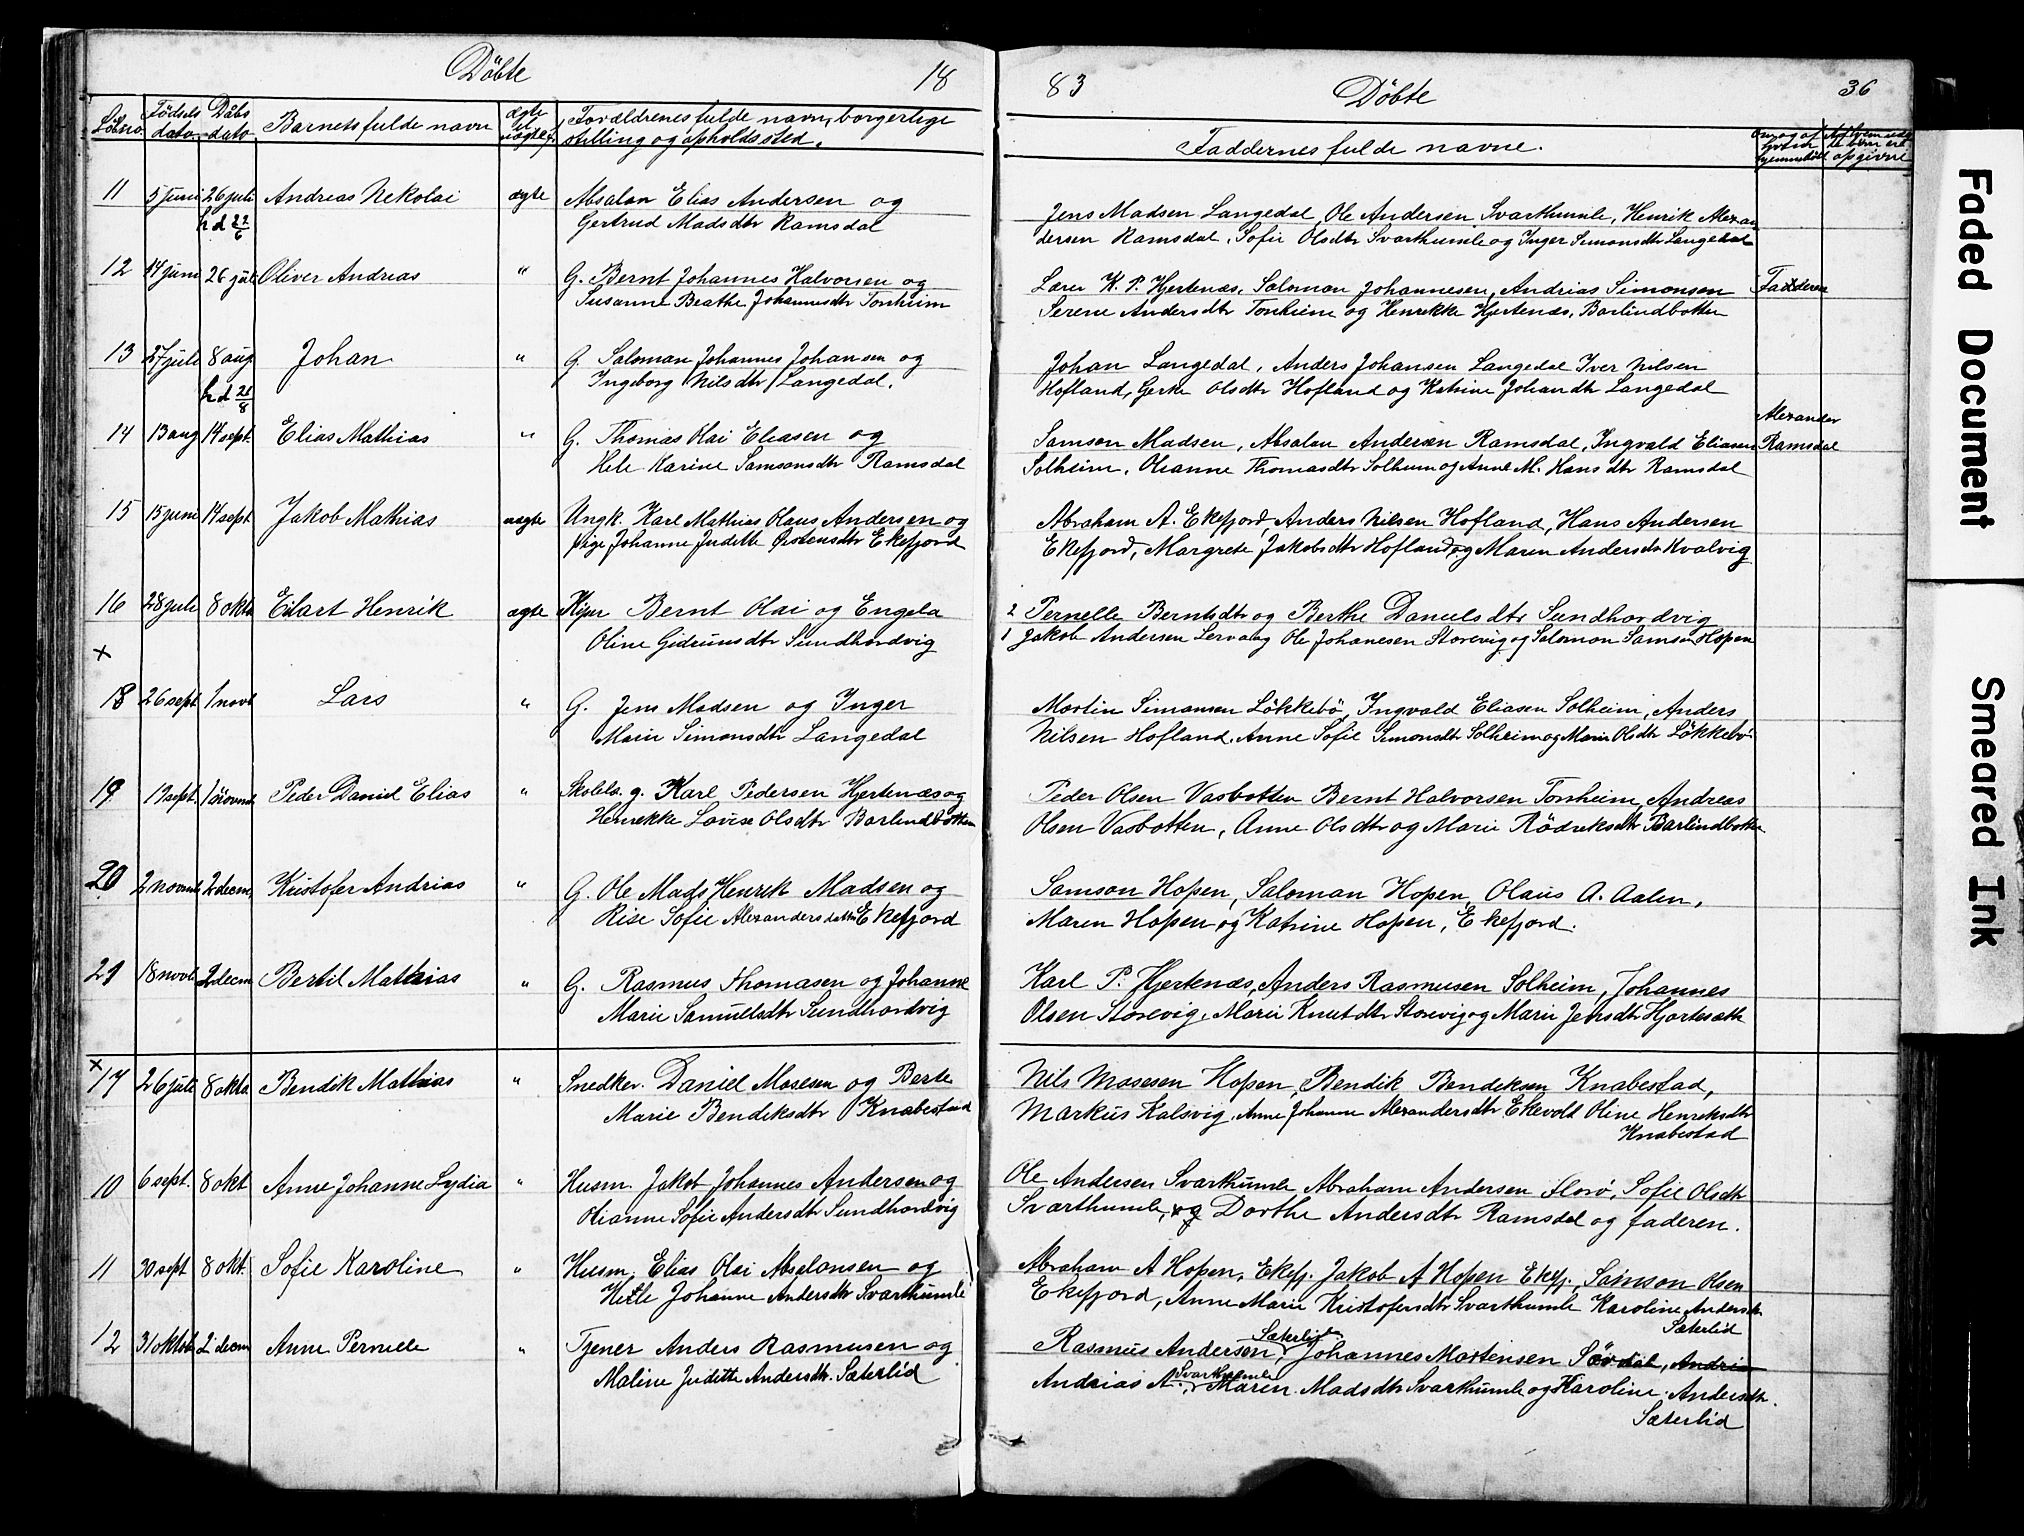 Döbte 18
Löbno. Födsels dato Dåbs dato Barnets fulde navn ægte el uægte f. Forældrenes fulde navn, borgerlige stilling og opholdssted.
11 5 juni 26 juli Andreas Nekolai ægte Absalon Elias Andersen og
h d 22/6 Gertrud Madsdtr Ramsdal
12 14 juni 26 juli Oliver Andreas " G. Bernt Johannes Halvorsen og
Susanne Beathe Johannesdtr Tonheim
13 27 juli 8 aug Johan " G. Saloman Johannes Johansen og
h d 28/8 Ingeborg Nilsdtr Langedal.
14 13 aug 14 sept. Elias Mathias " G. Thomas Olai Eliasen og
Hele Karine Samsonsdtr Ramsdal
15 15 juni 14 sept Jakob Mathias uægte Ungk. Karl Mathias Olaus Andersen og
pige Johanne Juditte Østensdtr Ekefjord
16 28 juli 8 okto Eilart Henrik ægte Kjper Bernt Olai og Engela
x Oline Gidiunsdtr Sundhordvig
18 26 sept. 1 novb Lars " G. Jens Madsen og Inger
Marie Simonsdtr Langedal
19 19 sept. 1 novmb. Peder Daniel Elias " Skolel. g. Karl Pedersen Hjertenæs og
Henrekke Lovise Olsdtr Barlindbotten
20 2 novmb. 2 decm. Kristofer Andrias " G. Ole Mads Henrik Madsen og
Rise Sofie Alexandersdatter Ekefjord
21 18 novb. 2 decm Bertil Mathias " G. Rasmus Thomasen og Johanne
Marie Samuelsdtr Sundhordvig
x 17 26 juli 8 okto. Bendik Mathias " Snedker. Daniel Mosesen og Berte
Marie Bendiksdtr Knabestad
10 6 sept. 8 okt Anne Johanne Lydia " Husm. Jakob Johannes Andersen og
Olianne Sofie Andersdtr Sundhordvig
11 30 sept 8 okt. Sofie Karoline " Husm. Elias Olai Absalonsen og
Helle Johanne Andersdtr Svarthumle
12 31 oktob. 2 decm Anne Pernele " Tjener Anders Rasmusen og
Maline Juditte Andersdtr. Sæterlid
83 Döbte 36
Faddernes fulde navne.
Jens Madsen Langedal, Ole Andersen Svarthumle, Henrik Alexan
dersen Ramsdal, Sofie Olsdtr Svarthumle og Inger Simonsdtr Langedal
Lærer K. P. Hjertenæs, Saloman Johannesen, Andrias Simonsen Fadderen
Serene Andersdtr Tonheim og Henrekke Hjertenæs, Barlindbotten
Johan Langedal, Anders Johansen Langedal Iver Nilsen
Hofland, Gerke Olsdtr Hofland og Katrine Johandtr Langedal
Alexander
Samson Madsen, Absalon Andersen Ramsdal, Ingvald Eliasen Ramsdal
Solheim, Olianne Thomasdtr Solheim og Anne M. Hansdtr Ramsdal
Abraham A. Ekefjord, Anders Nilsen Hofland, Hans Andersen
Ekefjord, Margrete Jakobsdtr Hofland og Maren Andersdtr Kvalvig
2 Pernelle Berntsdtr og Berthe Danielsdtr Sundhordvig
1 Jakob Andersen Lervaag Ole Johanesen Storevig og Salomon Samson Hopen
Martin Simonsen Løkkebö, Ingvald Eliasen Solheim, Anders
Nilsen Hofland, Anne Sofie Simonsdtr Solheim og Marie Olsdtr Løkkebö
Peder Olsen Vasbotten Bernt Halvorsen Tonheim, Andreas
Olsen Vasbotten, Anne Olsdtr og Marie Rödriksdtr Barlindbotten
Samson Hopen, Saloman Hopen, Olaus A. Aalen,
Maren Hopen og Katrine Hopen, Ekefjord.
Karl P. Hjertenæs, Anders Rasmusen Solheim, Johannes
Olsen Storevig, Marie Knutdtr Storevig og Marie Jensdtr Hjortesæth
Nils Mosesen Hopen, Bendik Bendiksen Knabestad,
Markus Kalsvig, Anne Johanne Alexandersdtr Ekevold Oline Henriksdtr
Knabestad
Ole Andersen Svarthumle Abraham Andersen Florö, Sofie Olsdtr
Svarthumle, og Dorthe Andersdtr Ramsdal og faderen.
Abraham A Hopen, Ekefj. Jakob A Hopen Ekefj., Samson Olsen
Ekefjord, Anne Marie Kristofersdtr Svarthumle Karoline Andersdtr
Sæterlid
Rasmus Andersen, Sæterlid Johannes Mortensen Sördal, Andrias
Andrias A. Svarthumle Maren Madsdtr Svarthumle og Karoline Andersdtr.
Sæterlid
Faded Document
Smeared Ink